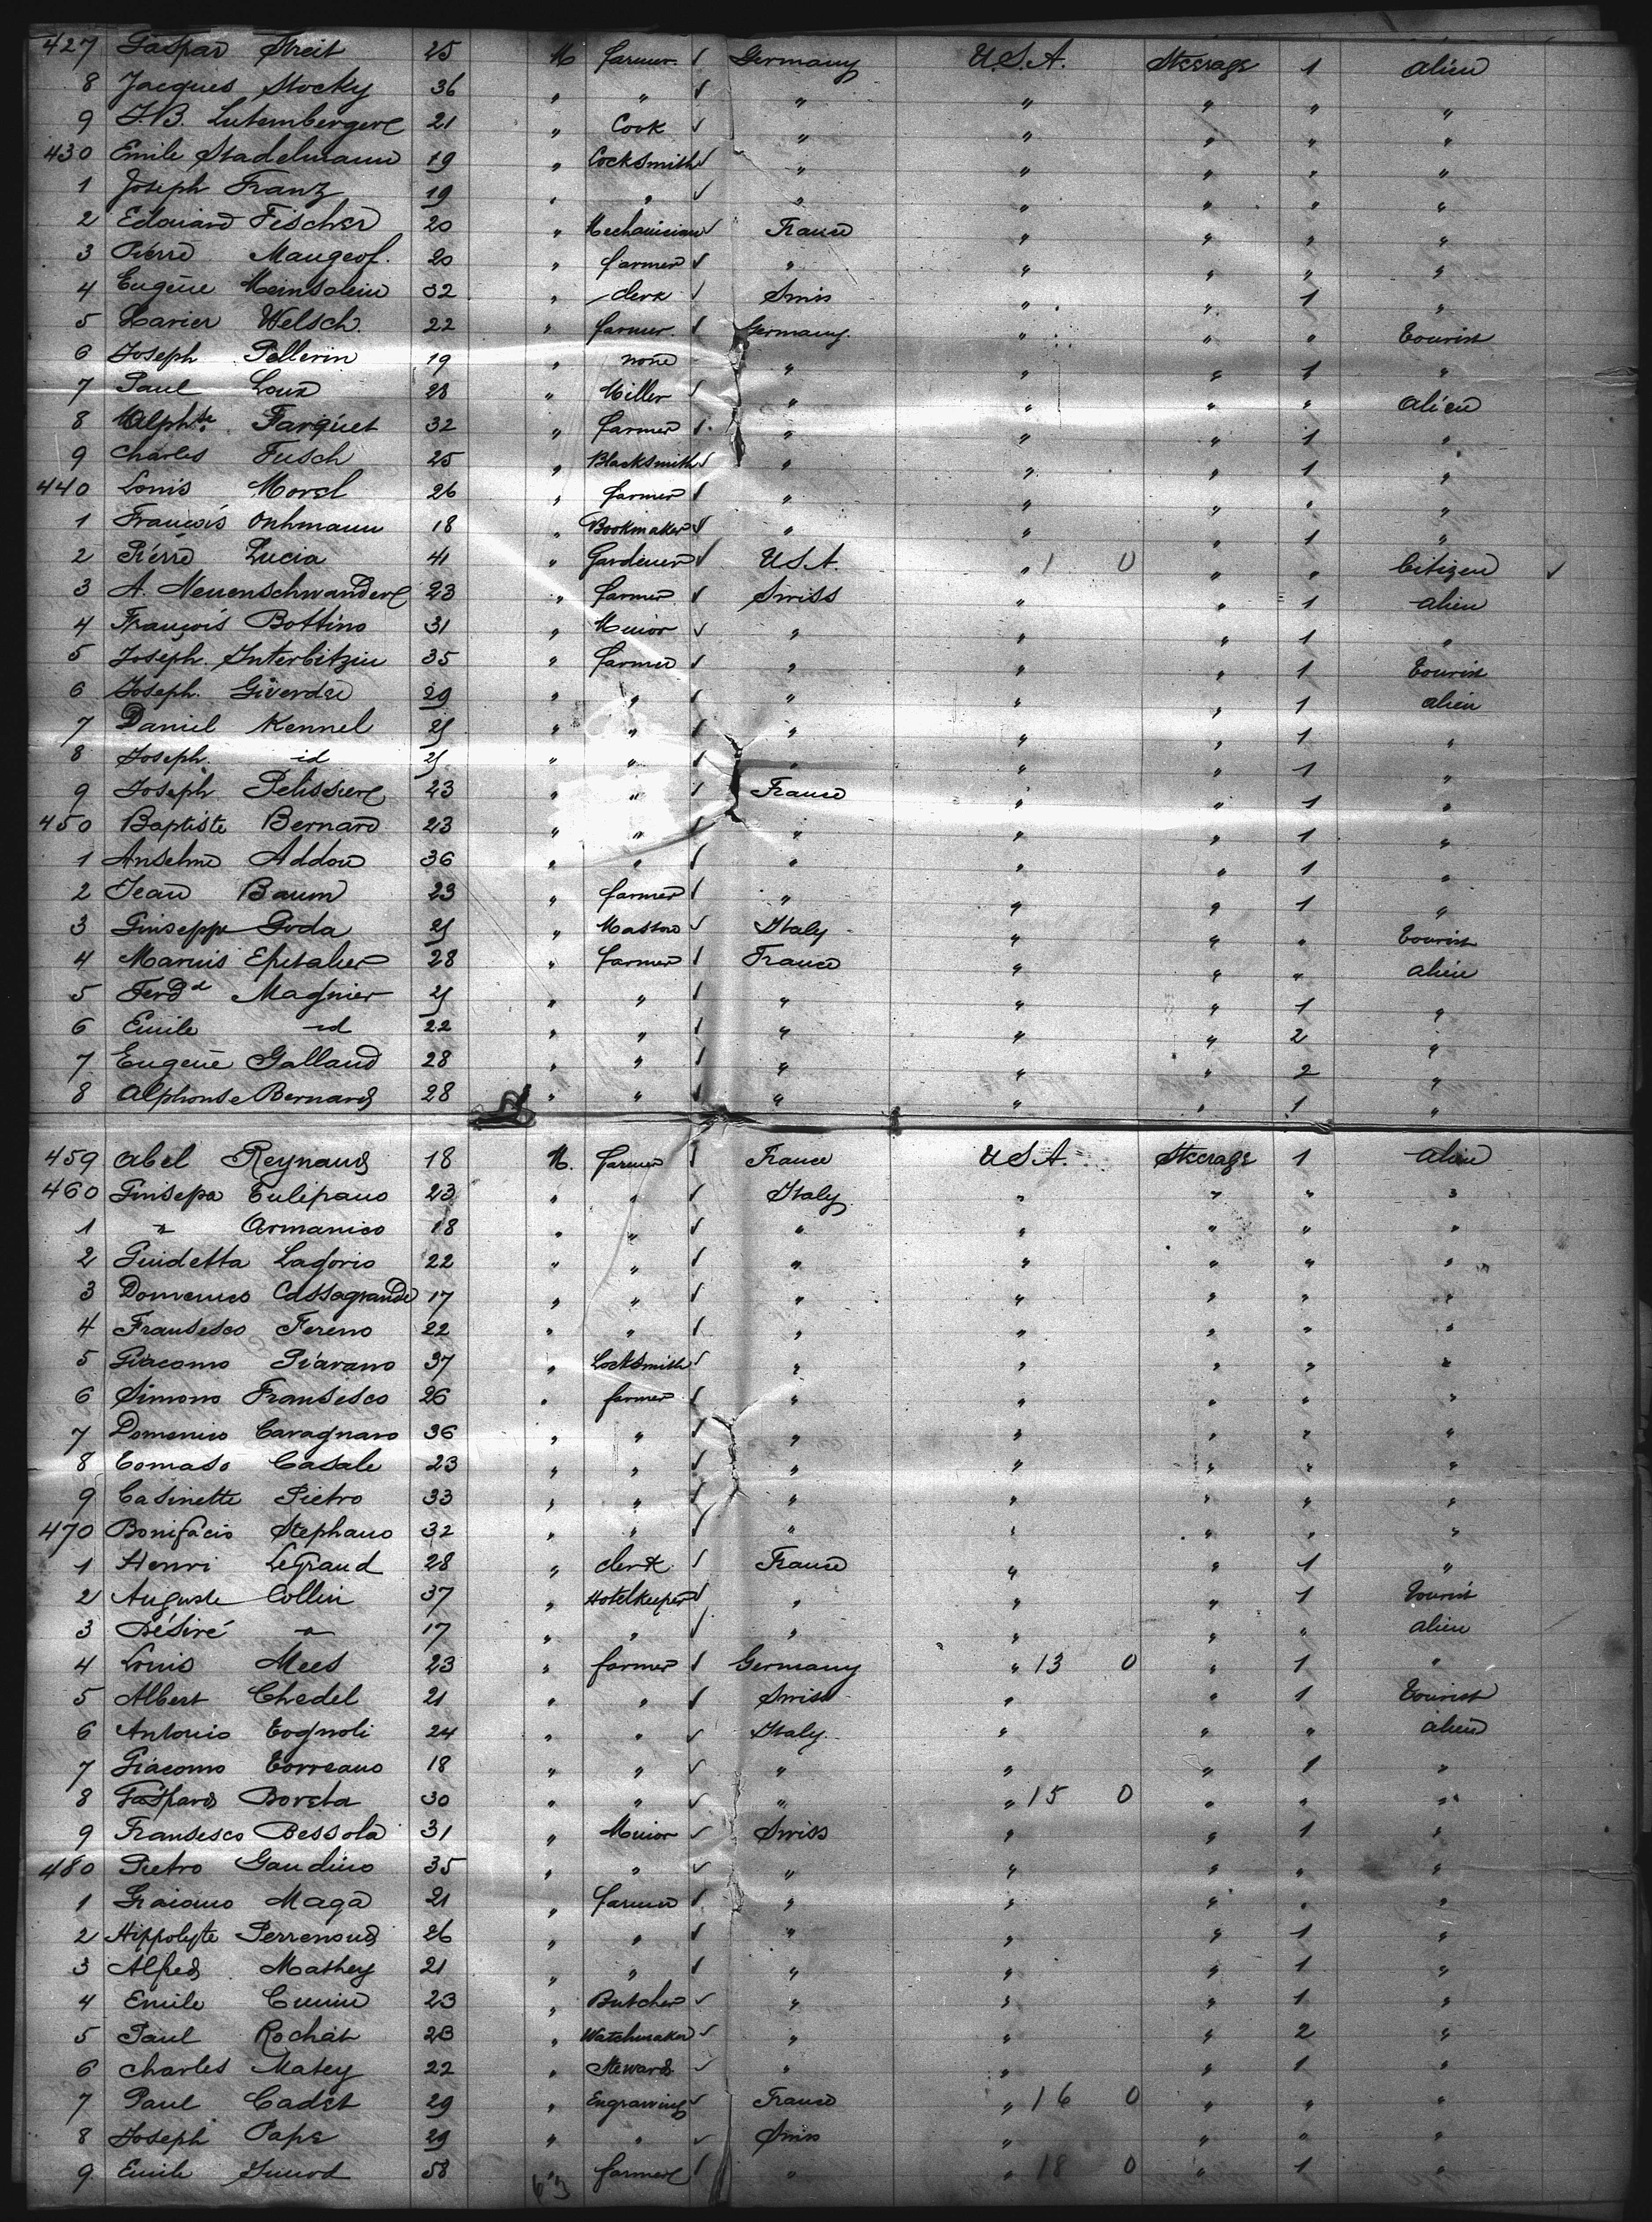 427 Gaspar Streit 25 M farmer Germany U.S.A. Steerage 1 alien
8 Jacques Stocky 36 " " " " " " "
9 J.B. Lutembergere 21 " Cook " " " " "
430 Emile Stadelmann 19 " Locksmith " " " " "
1 Joseph Franz 19 " " " " " " "
2 Edouard Fischer 20 " Mechanician France " " " "
3 Pierre Maugeof. 20 " farmer " " " " "
4 Eugène 32 " clerk Swiss " " 1 "
5 Xavier Welsch. 22 " farmer Germany. " " " tourist
6 Joseph Pellerin 19 " none " " " 1 "
7 Paul Loux 28 " Miller " " " " alien
8 Alphse Farquet 32 " farmer " " " 1 "
9 Charles Fusch 25 " Blacksmith " " " 1 "
440 Louis Morel 26 " farmer " " " " "
1 François Onhmann 18 " Bookmaker " " " 1 "
2 Pierre Lucia 41 " Gardener U.S.A. " 1 0 " " Citizen
3 A. Neuenschwandere 23 " farmer Swiss " " 1 alien
4 François Bottino 31 " Minor " " " 1 "
5 Joseph Interbitzin 35 " farmer " " " 1 tourist
6 Joseph. 29 " " " " " 1 alien
7 Daniel Kennel 25 " " " " " 1 "
8 Joseph. id 25 " " " " " 1 "
9 Joseph Pelissiere 23 " " France " " 1 "
450 Baptiste Bernard 23 " " " " " 1 "
1 Anselme Addou 36 " " " " " 1 "
2 Jean Baum 23 " farmer " " " 1 "
3 Giuseppe Goda 25 " Masson Italy " " " tourist
4 Marius Epitalier 28 " farmer France " " " alien
5 Ferdd Magnier 25 " " " " " 1 "
6 Emile id 22 " " " " " 2 "
7 Eugène Galland 28 " " " " " 2 "
8 Alphonse Bernard 28 " " " " " 1 "
459 Abel Reynaud 18 M. farmer France U.S.A. Steerage 1 alien
460 Giusepa Tulipano 23 " " Italy " " " "
1 " Armanico 18 " " " " " " "
2 Guidetta Lagorio 22 " " " " " " "
3 Domenico Cassagrande 17 " " " " " " "
4 Fransesco Fereno 22 " " " " " " "
5 Giacomo Piavano 37 " Locksmith " " " " "
6 Simono Fransisco 26 " farmer " " " " "
7 Domenico Cavagnaro 36 " " " " " " "
8 Tomaso Casale 23 " " " " " " "
9 Casinette Pietro 33 " " " " " " "
470 Bonifacio Stephano 32 " " " " " " "
1 Henri LeGrand 28 " clerk France " " 1 "
2 Auguste Collin 37 " Hotelkeeper " " " 1 tourist
3 Désiré " 17 " " " " " " alien
4 Louis Mees 23 " farmer Germany " 13 0 " 1 "
5 Albert Chedel 21 " " Swiss " " 1 tourist
6 Antonio Tognoli 24 " " Italy. " " " alien
7 Giacomo Torreano 18 " " " " " 1 "
8 Gaspard Boreta 30 " " " " 15 0 " " "
9 Fransesco Bessola 31 " Minor Swiss " " 1 "
480 Pietro Gaudino 35 " " " " " " "
1 Maga 21 " farmer " " " " "
2 Hippolyte Perrenoud 26 " " " " " 1 "
3 Alfred Mathey 21 " " " " " 1 "
4 Emile Cunin 23 " Butcher " " " 1 "
5 Paul Rochat 23 " Watchmaker " " " 2 "
6 Charles Matey 22 " Steward " " " 1 "
7 Paul Cadet 29 " Engraving France " 16 0 " " "
8 Joseph Pape 29 " " Swiss " " " "
9 Emile 58 " farmer " " 18 0 " 1 "
63